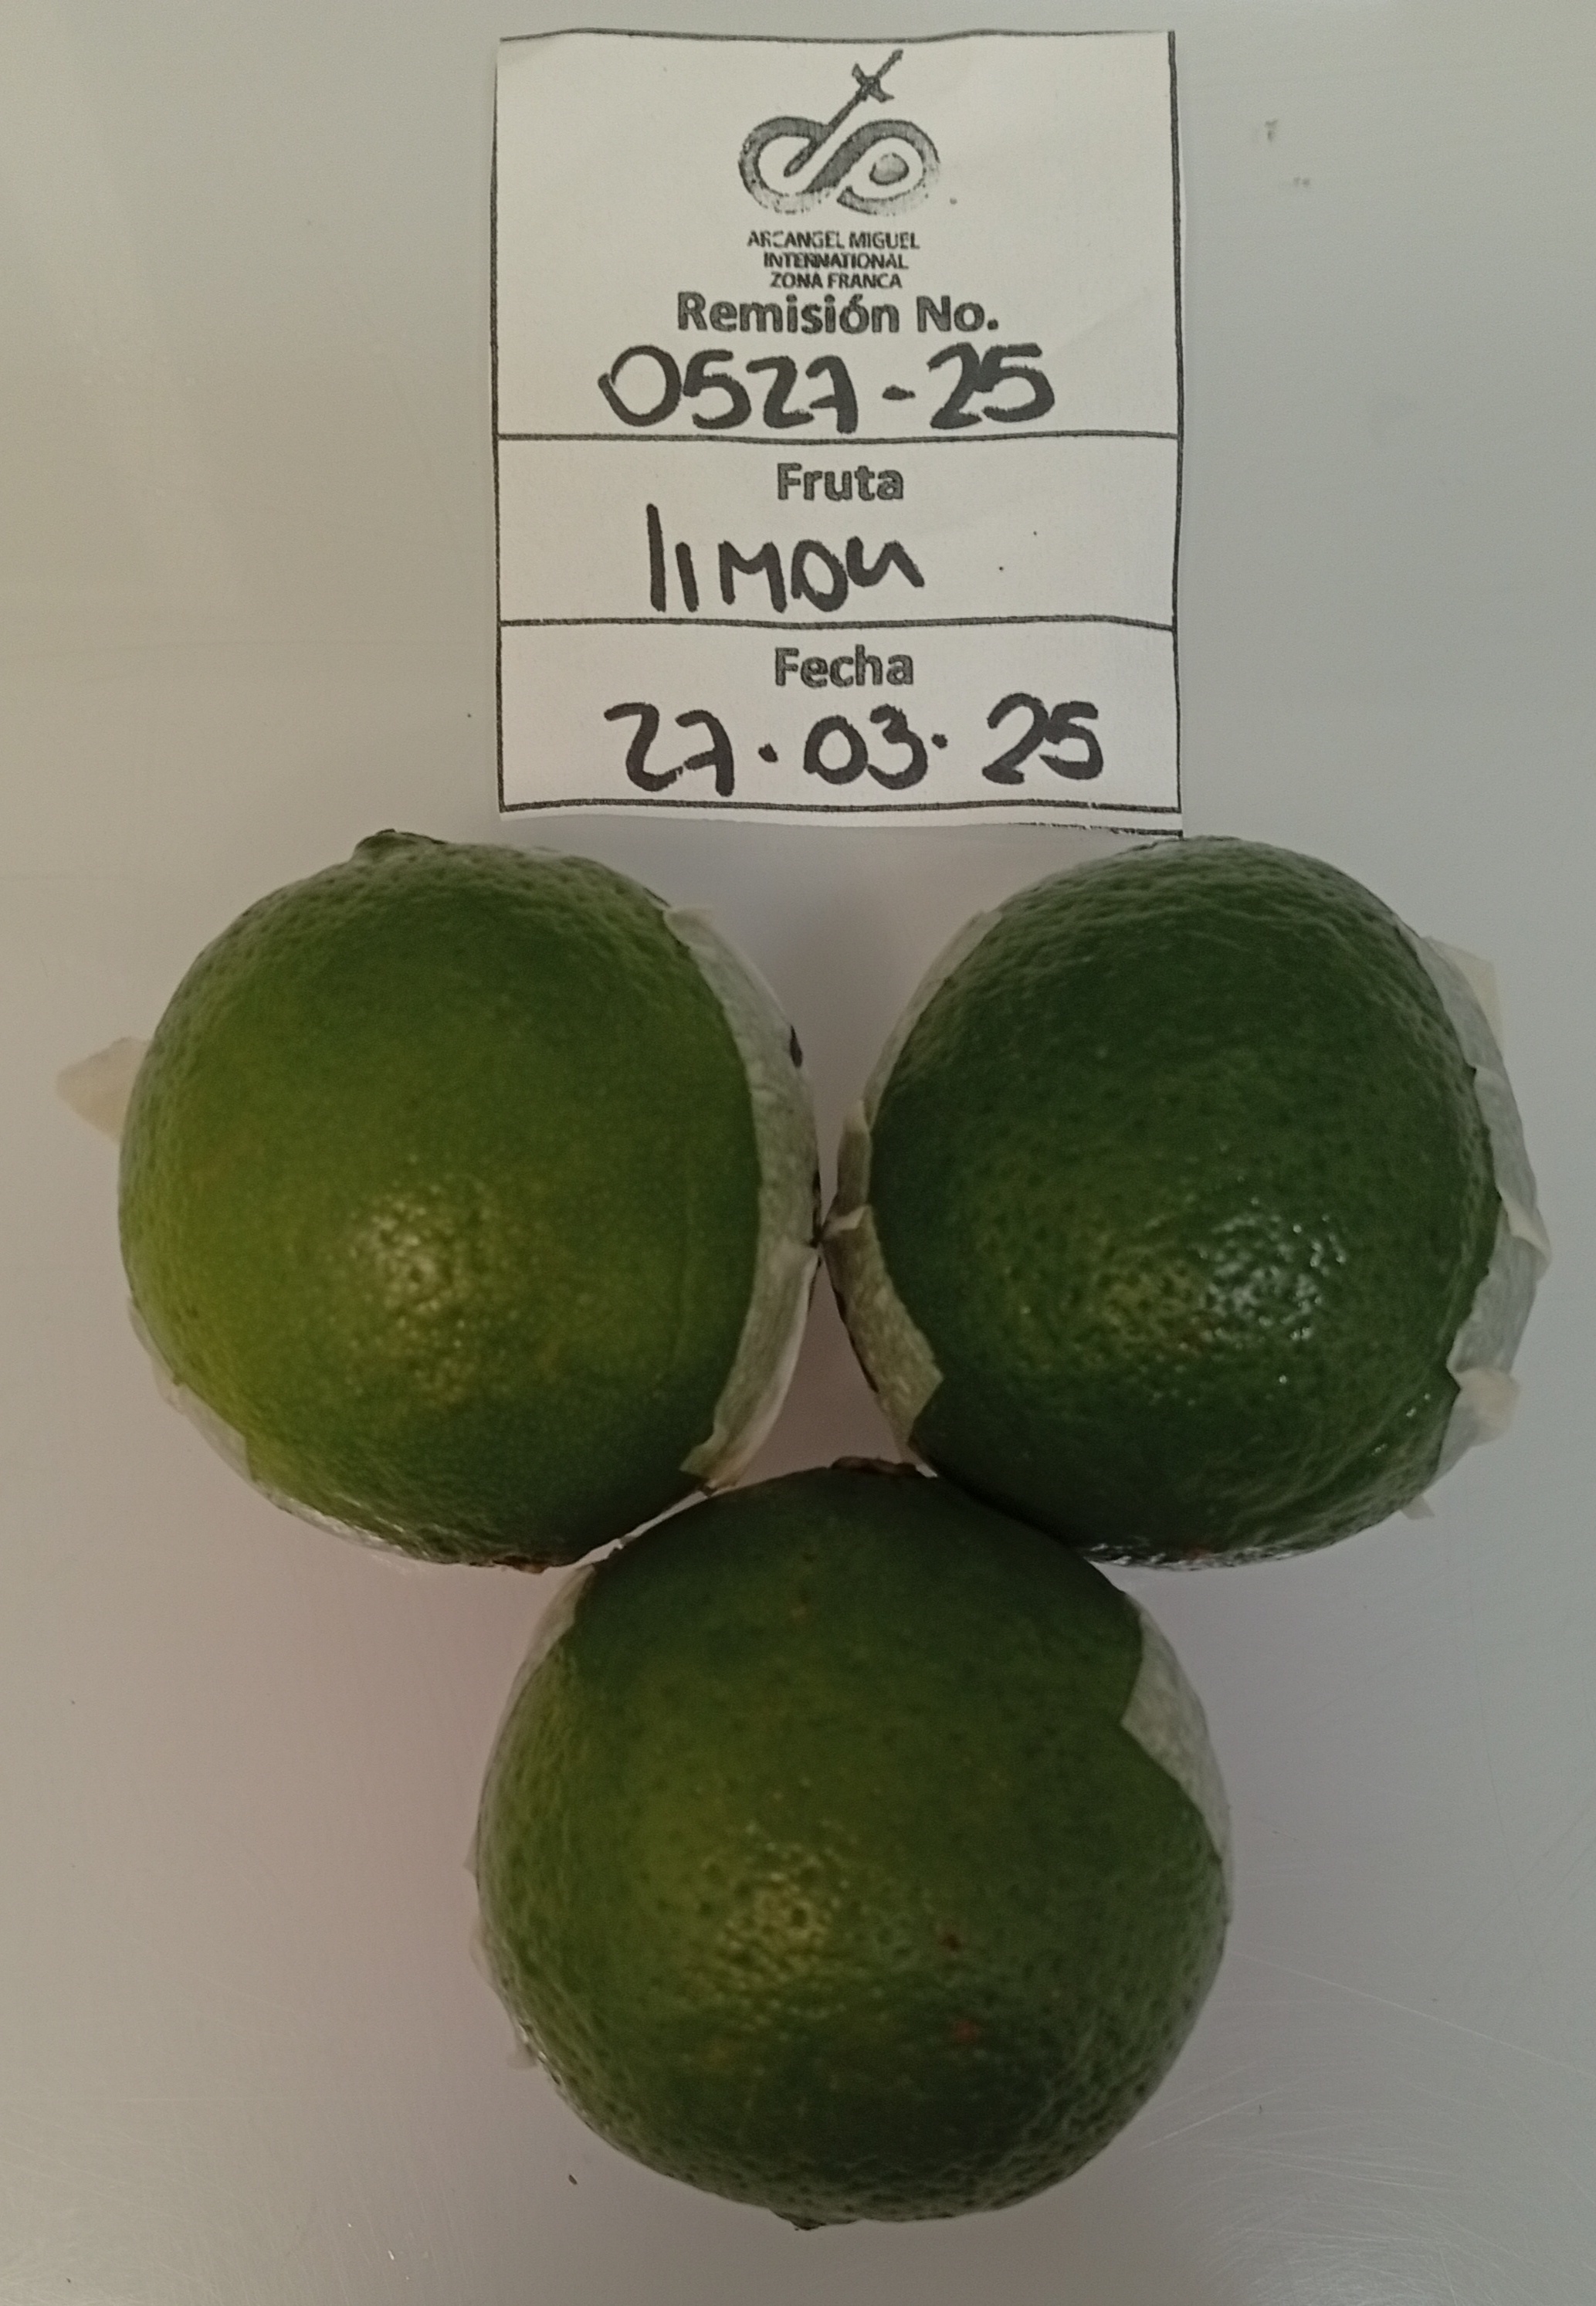 ARCANGEL MIGUEL
INTERNATIONAL
ZONA FRANCA
Remisión No.
0527-25
Fruta
limon
Fecha
27.03.25